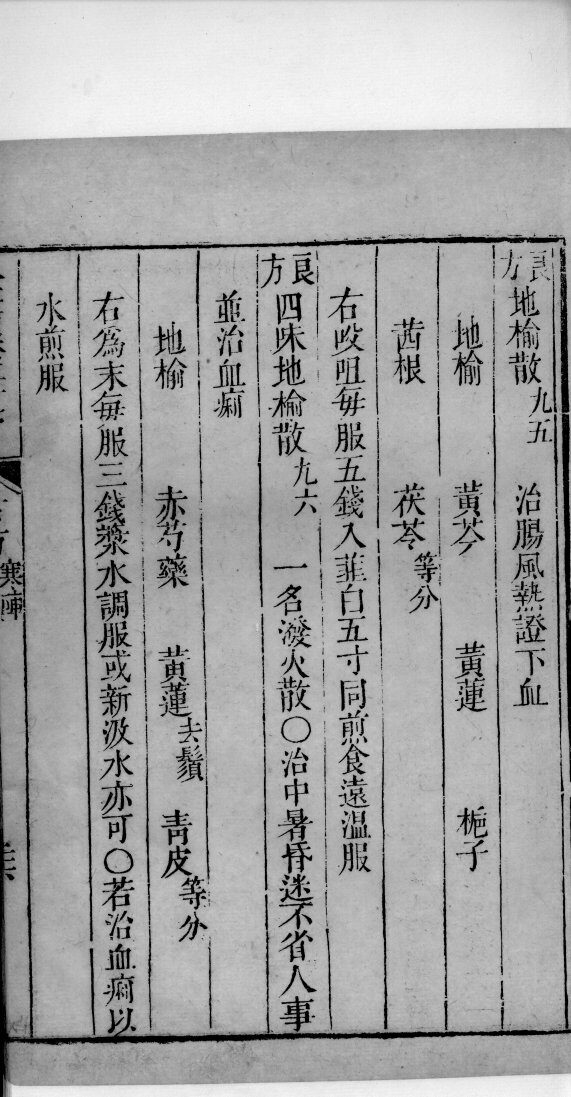 良方地榆散九五　治腸風熱證下血
地榆　黃芩　黃蓮　梔子
茜根　茯苓等分
右㕮咀每服五錢入薤白五寸同煎食遠溫服
良方四味地榆散九六　一名潑火散〇治中暑昏迷不省人事
並治血痢
地榆　赤芍藥　黃蓮去鬚　青皮等分
右爲末每服三錢漿水調服或新汲水亦可〇若治血痢以
水煎服
寒陣